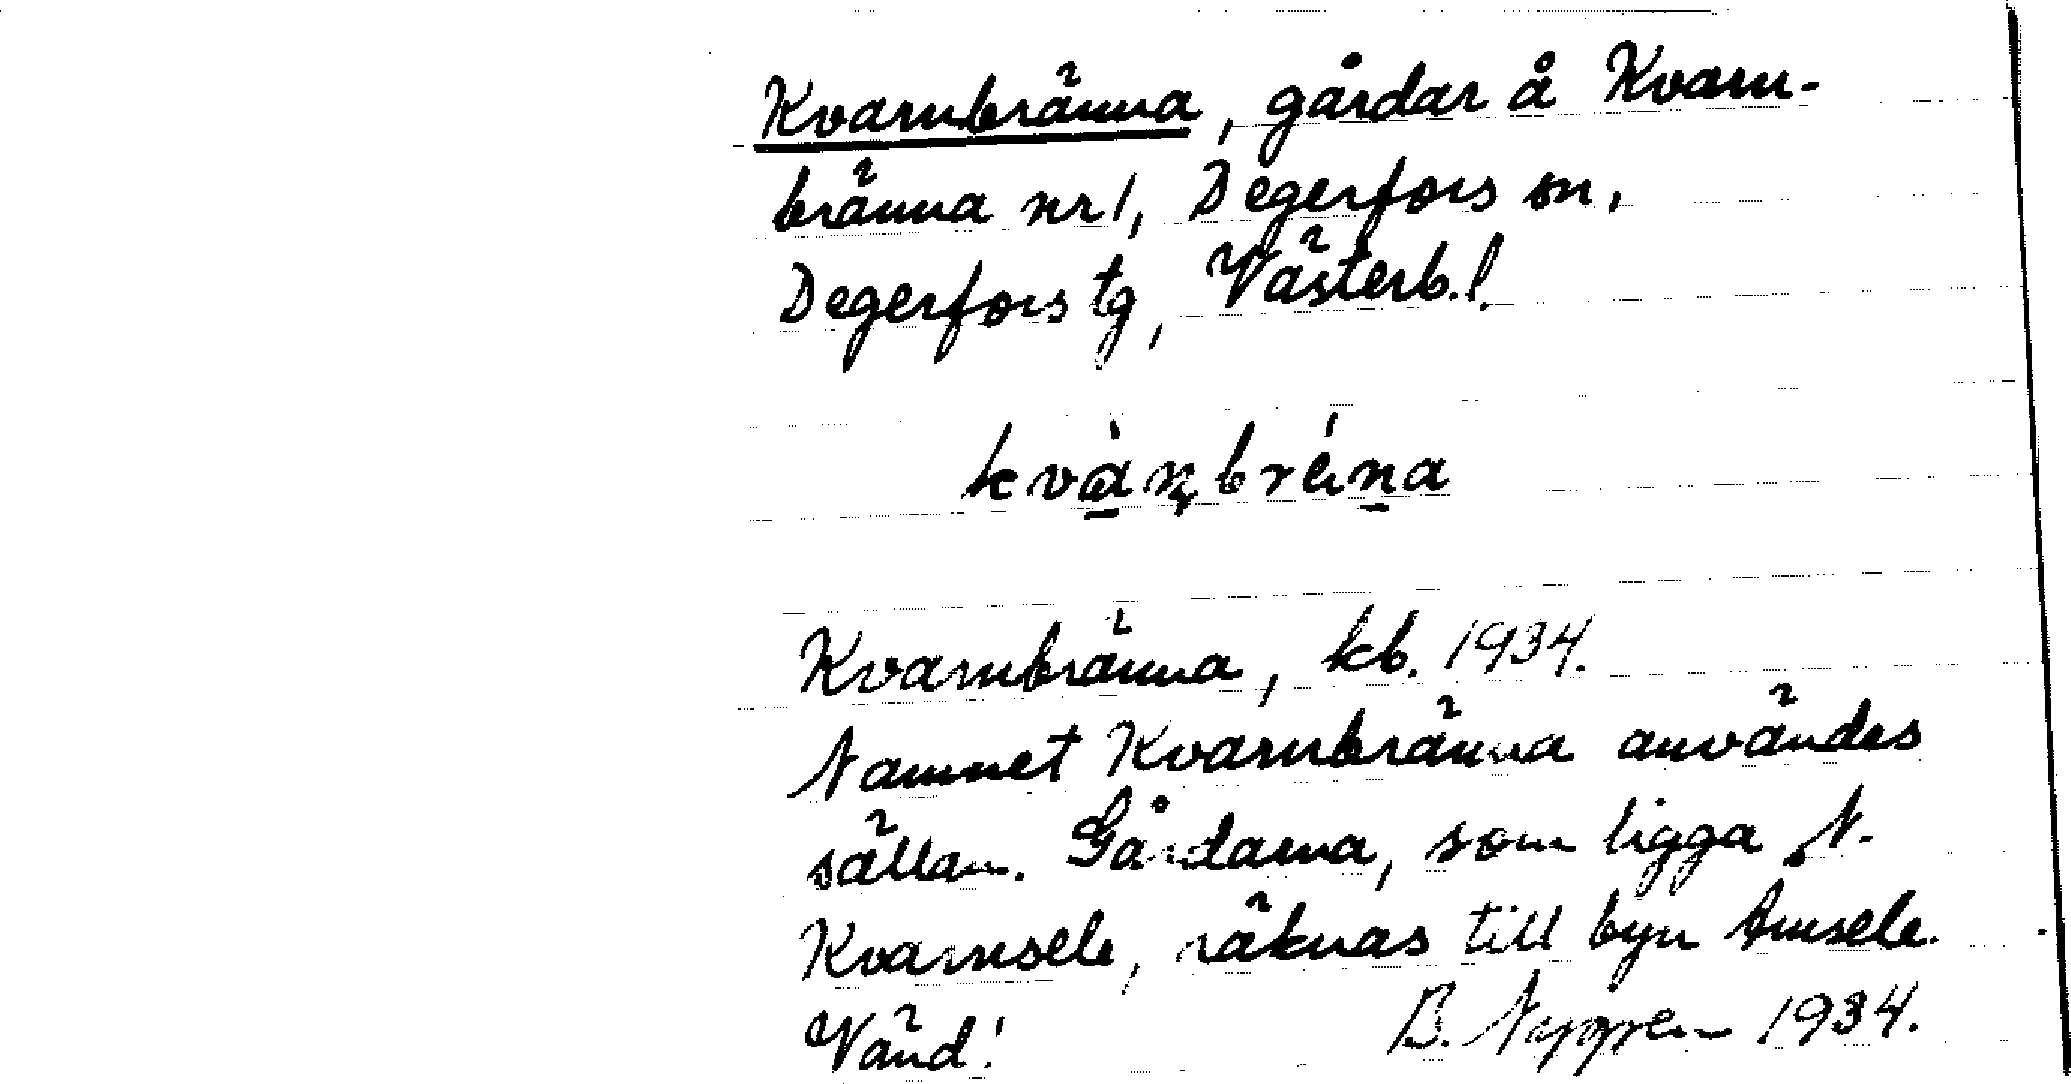 Kvarnbränna, gårdar å Kvarn-
bränna nr 1, Degerfors sn,
Degerfors tg, Västerb. l.
Kvarnbränna, kb. 1934.
Namnet Kvarnbränna användes
sällan. Gårdarna, som ligga N.
Kvarnsele, räknas till byn Amsele.
Vänd! B. 1934.